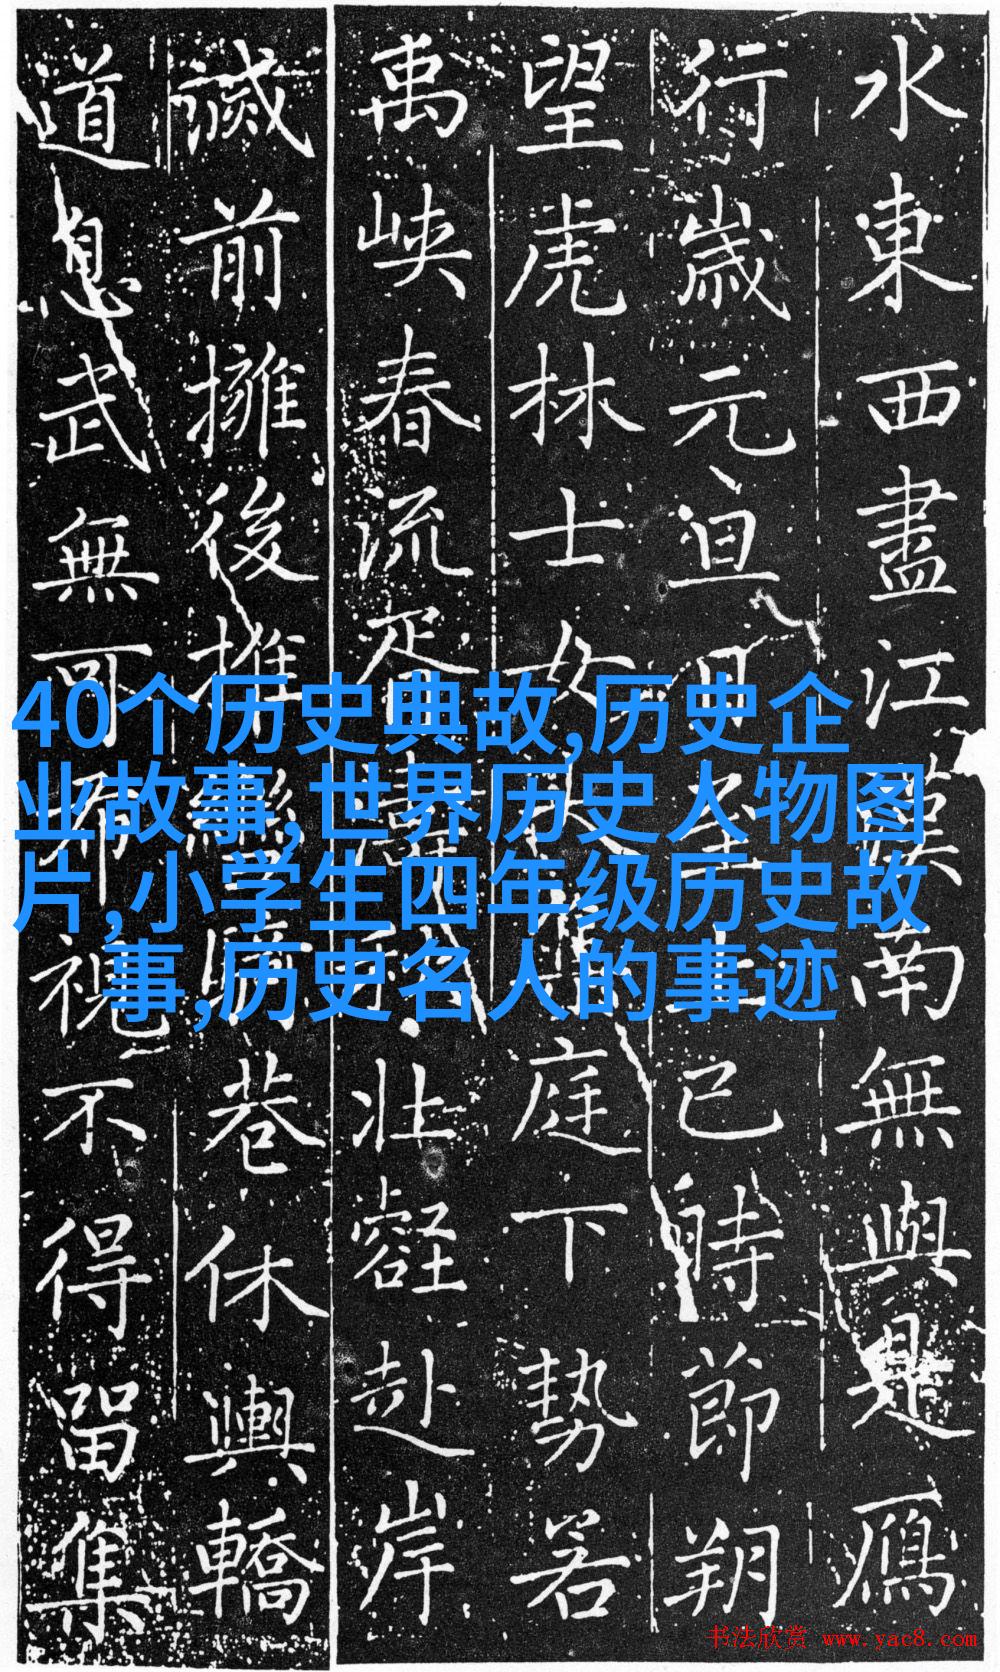 水東西盡江漢南無與是鴈
行歲元旦至上巳時節朔
望虎林士女庭下勢若
禹峽春流壯壑赴岸
滅前擁後推巷休輿轎
道息武無可視不得留集
40个历史典故,历史企
业故事,世界历史人物图
片,小学生四年级历史故
事,历史名人的事迹
书法欣赏 www.yac8.com